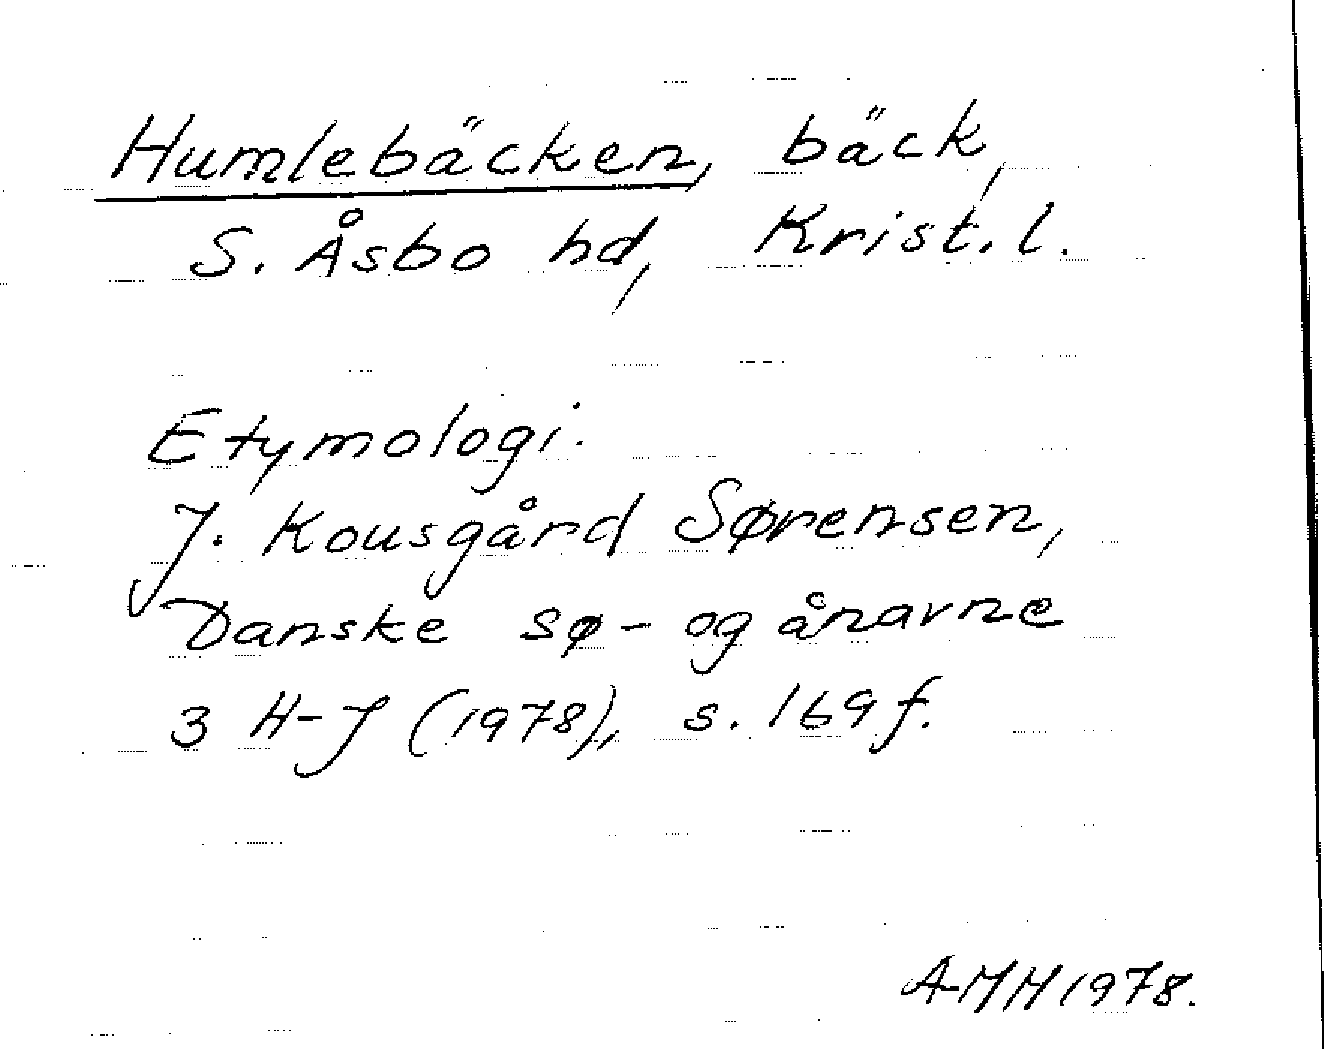 Humlebäcken, bäck,
S. Åsbo hd, Krist. l.
Etymologi.
J. Kousgård Sørensen,
Danske sø- og ånavne
3 H-J (1978), s. 169 f.
AMH 1978.